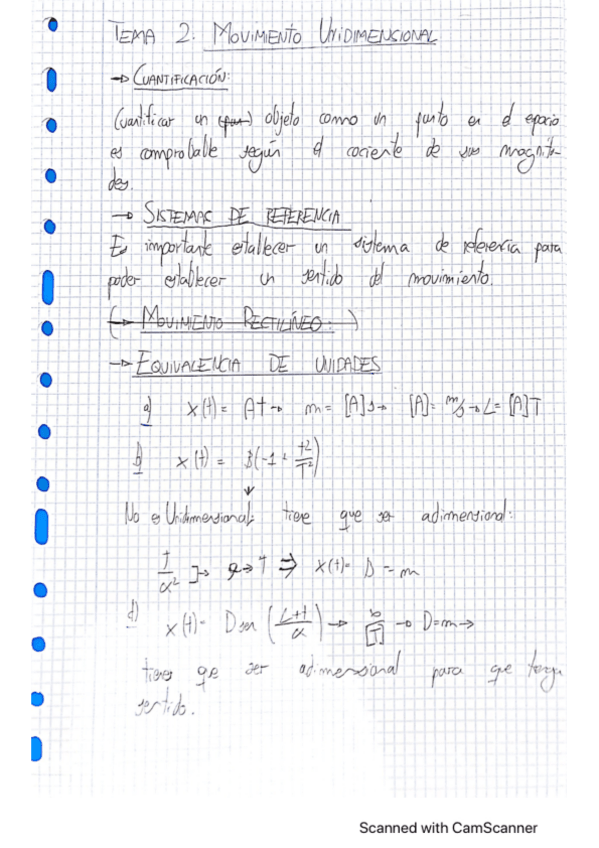 TEMA 2: MOVIMIENTO UNIDIMENSIONAL
→ CUANTIFICACIÓN:
Cuantificar un objeto como un punto en el espacio
es comprobable según el cociente de sus magnitu-
des.
→ SISTEMAS DE REFERENCIA
Es importante establecer un sistema de referencia para
poder establecer un sentido del movimiento.
(→ MOVIMIENTO RECTILÍNEO: )
→ EQUIVALENCIA DE UNIDADES
a) x(t) = At → m = [A]s → [A] = m/s → L = [A]T
b) x(t) = B(-1 + t²/T²)
No es Unidimensional: tiene que ser adimensional:
x(t) = D = m
d) x(t) = D sen → D = m →
tienes que ser adimensional para que tenga
sentido.
Scanned with CamScanner